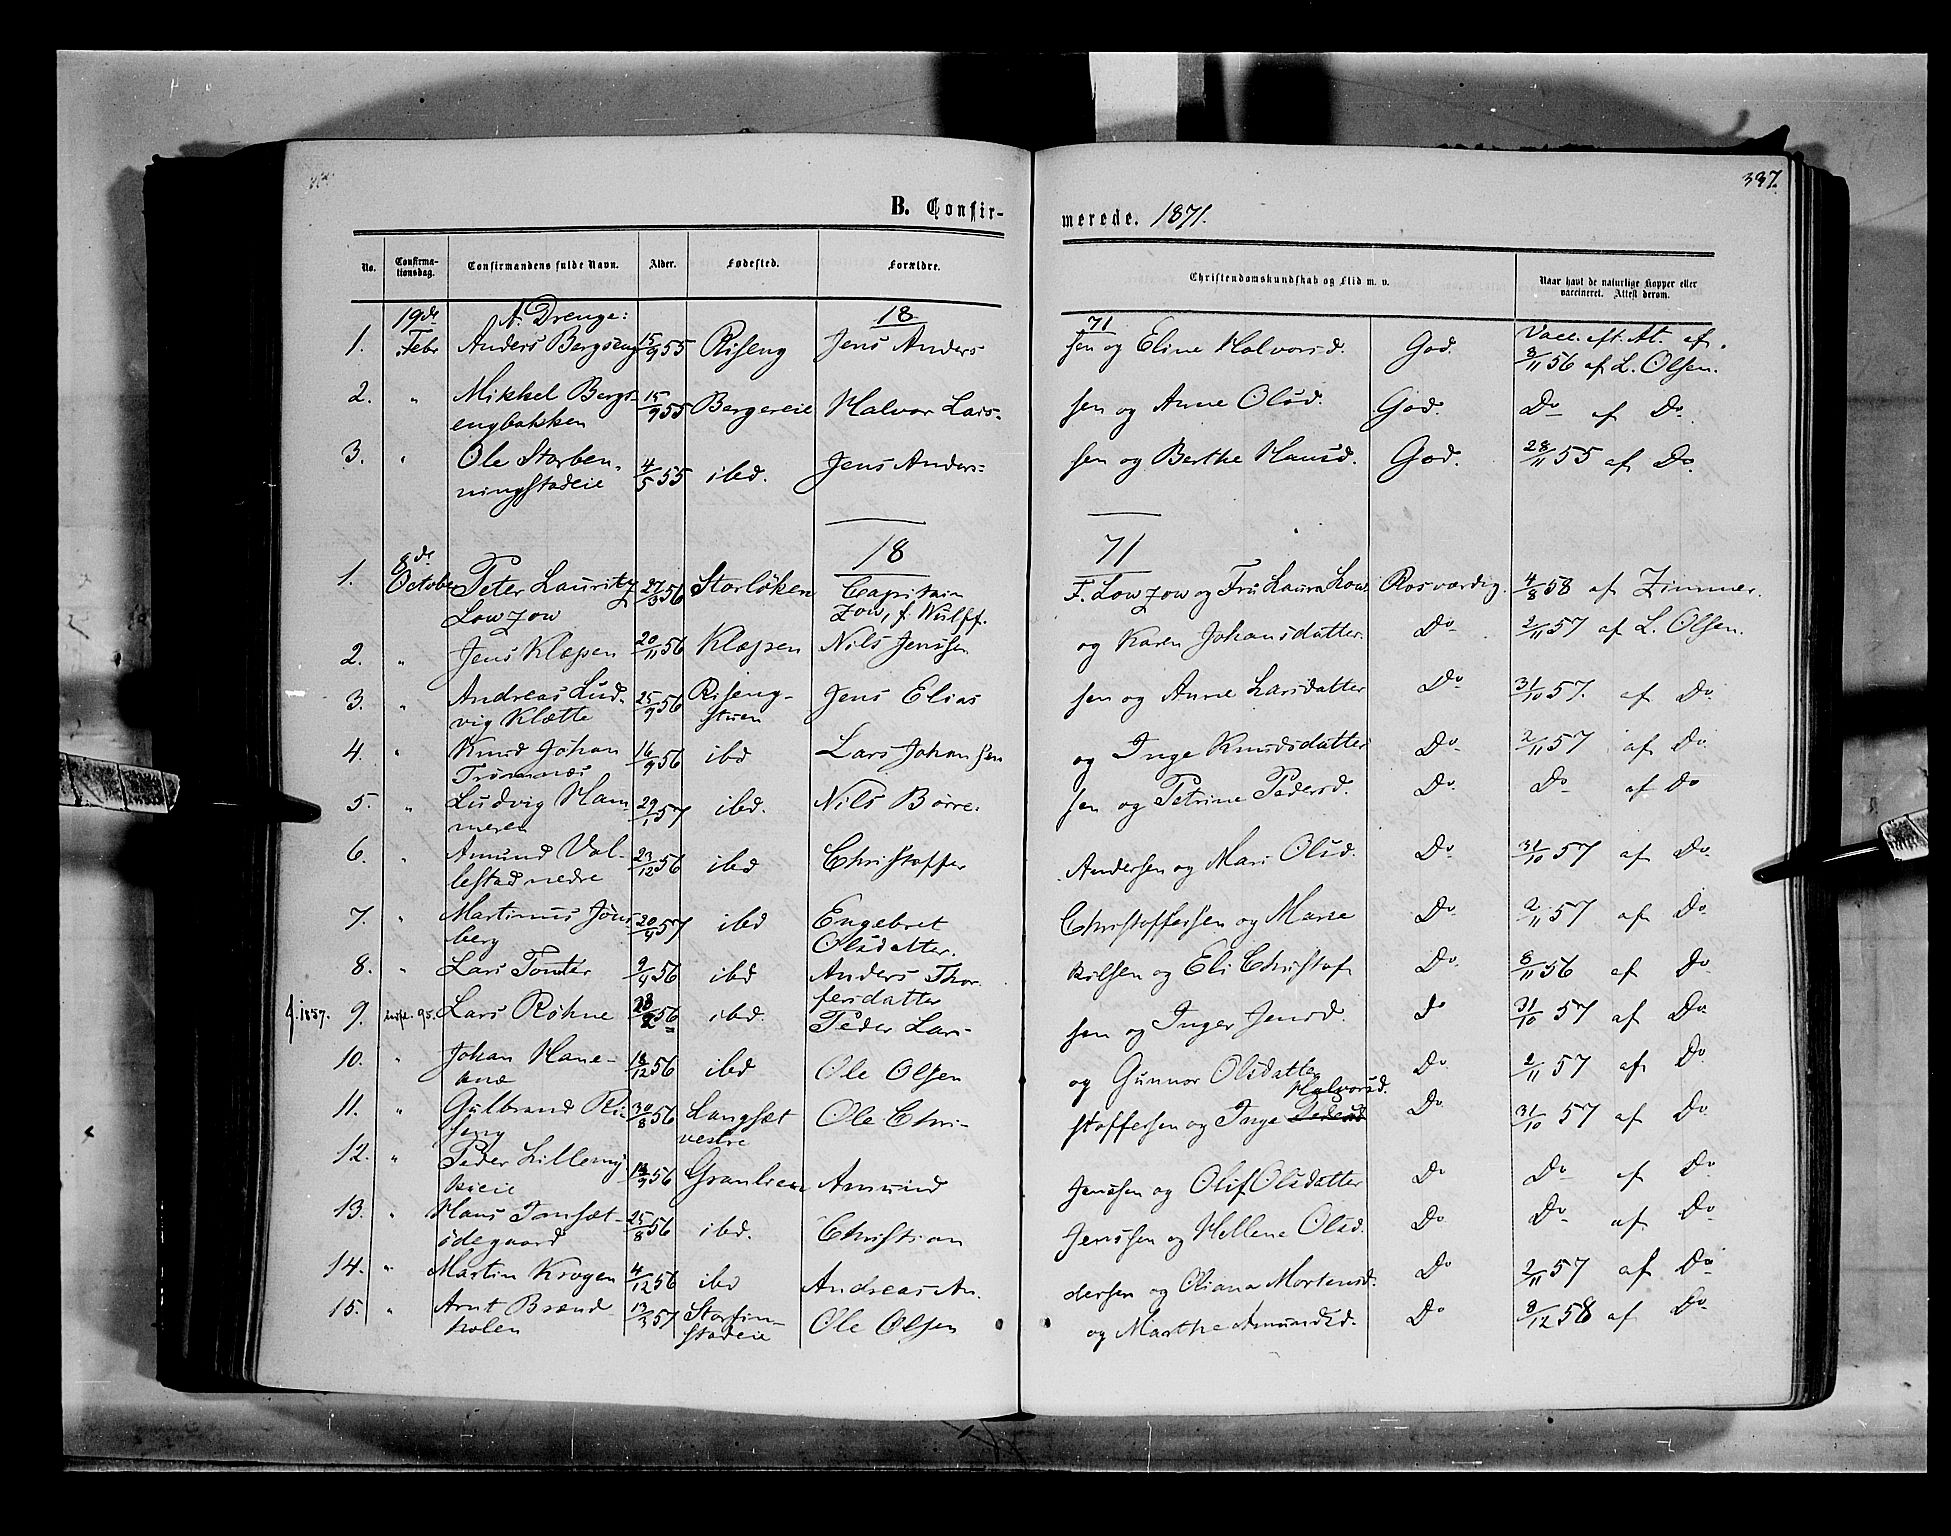 337.
B. Confir-
merede. 1871.
No. Confirma-tionsdag. Confirmandens fulde Navn. Alder. Fødested. Forældre. Christendomskundskab og Flid m. v. Naar havt de naturlige Kopper eller vaccineret. Attest derom.
19de A. Drenge: 18 71
1. Febr Anders Bergseng 15/9 55 Riseng Jens Anders sen og Eline Halvorsd. God. Vacc. eft. At. af. 3/11 56 af L. Olsen.
2. " Mikkel Bergs- 15/9 55 Bergereie Halvor Lars- sen og Anne Olsd. God. Do af Do
engbakken
3. " Ole Storben- 4/5 55 ibd. Jens Anders- sen og Berthe Hansd. God. 28/11 55 af Do
ningstadeie
8de 18 71
1. October Peter Lauritz 27/3 56 Storløken Capitain F. Lowzow og Fru Laura Low- Rosværdig. 4/8 58 af Zimmer.
Lowzow zow, f. Wulff.
2. " Jens Klæpen 20/11 56 Klæpen Nils Jenssen og Karen Johansdatter. Do 2/11 57 af L. Olsen.
3. " Andreas Lud- 25/9 56 Riseng- Jens Elias sen og Anne Larsdatter Do 31/10 57. af Do
vig Klætte stuen
4. " Knud Johan 16/9 56 ibd Lars Johansen og Inge Knudsdatter Do 2/11 57 af Do
5. " Ludvig Ham- 29/1 57 ibd. Nils Børre- sen og Petrine Pedersd. Do Do af Do
meren
6. " Amund Val- 23/12 56 ibd Christoffer Andersen og Mari Olsd. Do 31/10 57 af Do
lestad nedre
7. " Martinus Jøns 20/4 57 ibd Engebret Christoffersen og Marie Do 2/11 57 af Do
berg Olsdatter.
8. " Lars Tønter 9/4 56 ibd Anders Thor- kilsen og Eli Christof- Do 8/11 56 af Do
fersdatter
9. Lars Røhne 56 ibd. Peder Lars- sen og Inger Jensd. Do 31/10 57 af Do
10. " Johan Hane- 18/12 56 ibd Ole Olsen og Gunnor Olsdatter Do 2/11 57 af Do
knæ
11. " Gulbrand Ri- 30/8 56 Langsæt Ole Chri- stoffersen og Inge Halvorsd. Do 31/10 57 af Do
seng vestre
12. " Peder Lillemy 56 Granlien Amund Jenssen og Olif Olsdatter Do Do af Do
13. " Hans Tomsæt- 25/8 56 ibd. Christian Jenssen og Hellene Olsd. Do Do af Do
ødegaard
14. " Martin Krogen 4/12 56 ibd Andreas An- dersen og Oliana Mortensd. Do 2/11 57 af Do
15. " Arnt Brænd- 13/3 57 Ole Olsen og Marthe Amundsd. Do 8/12 58 af Do
holen stadeie